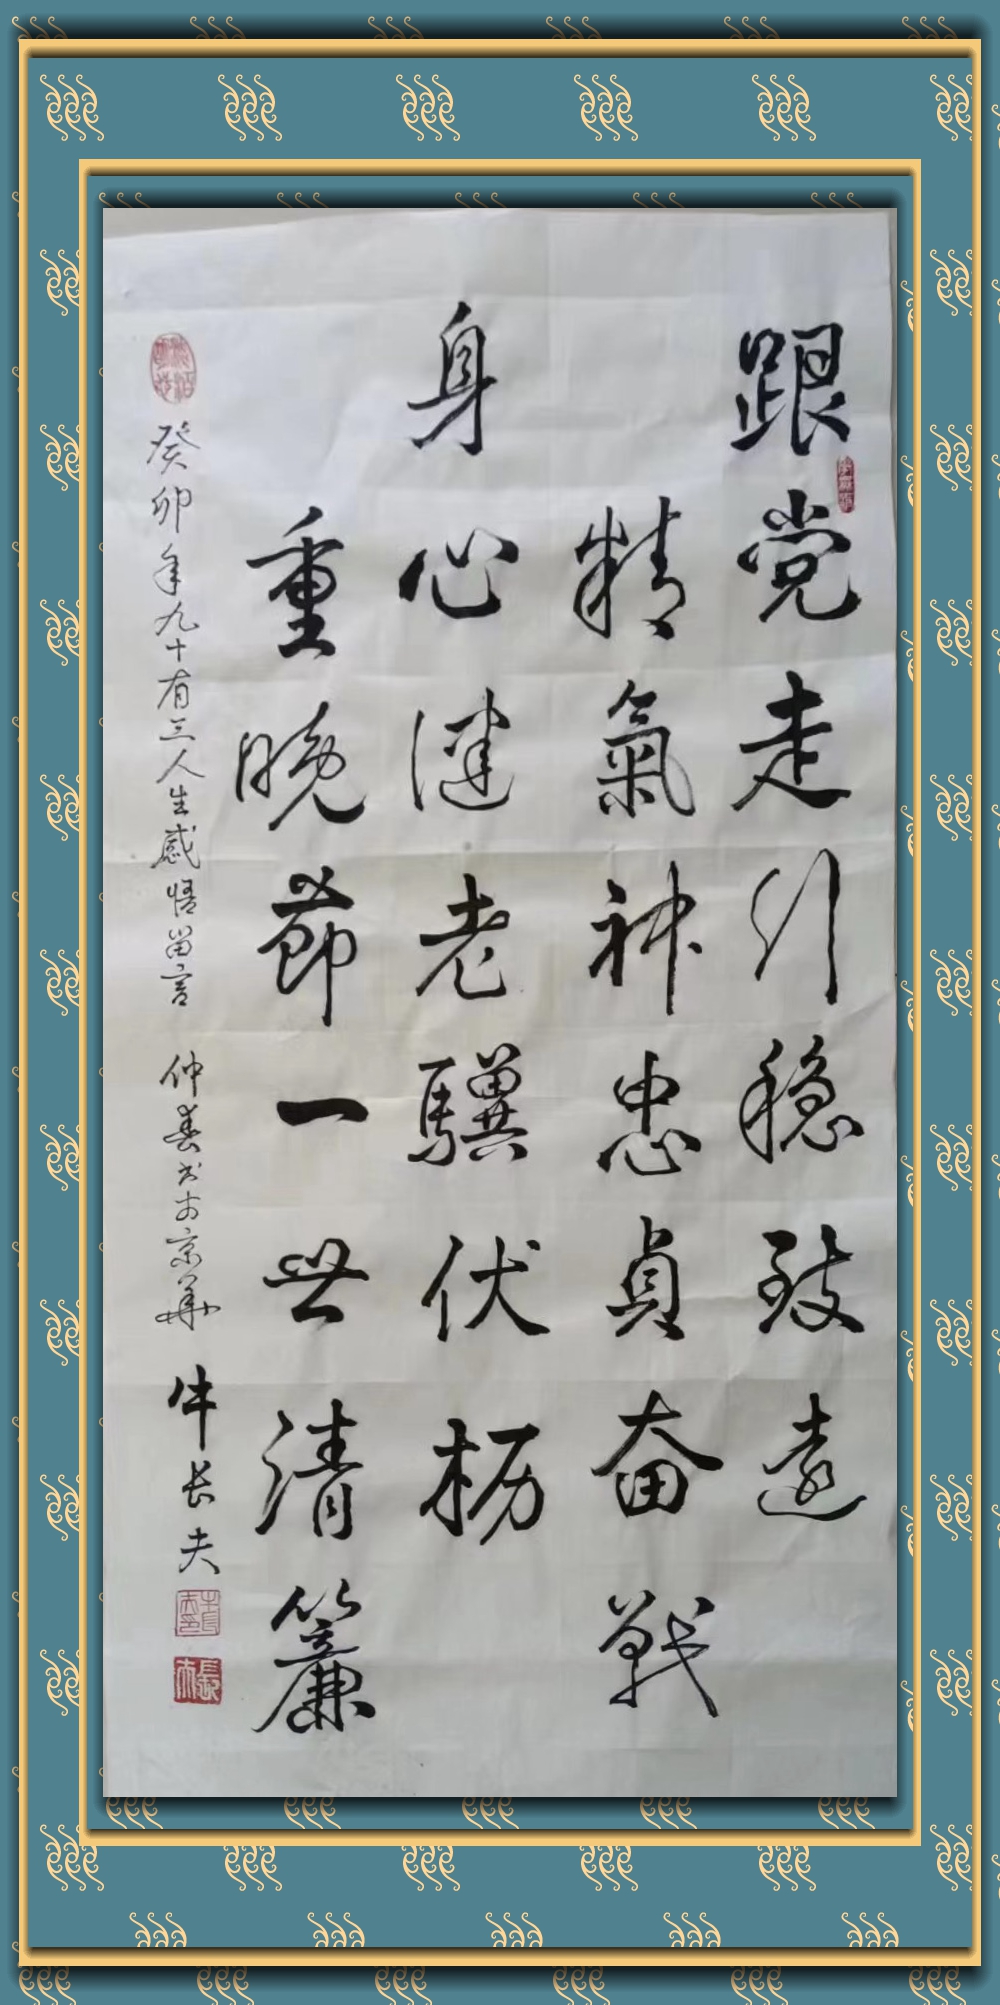 跟党走引稳致遠
精氣神忠貞奋戦
身心健老驥伏枥
重晚節一世清簾
癸卯年九十有三人生感悟留言 仲春书於京華 牛长夫